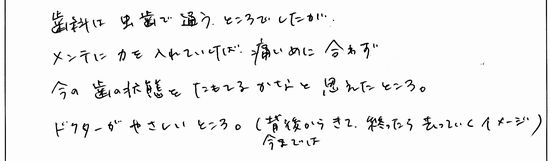 歯科は虫歯で通う、ところでしたが、
メンテに力を入れていけば痛いめに合わず
今の歯の状態をたもてるかなと思えたところ。
ドクターがやさしいところ。(背後からきて、終ったら去っていくイメージ)
今までは